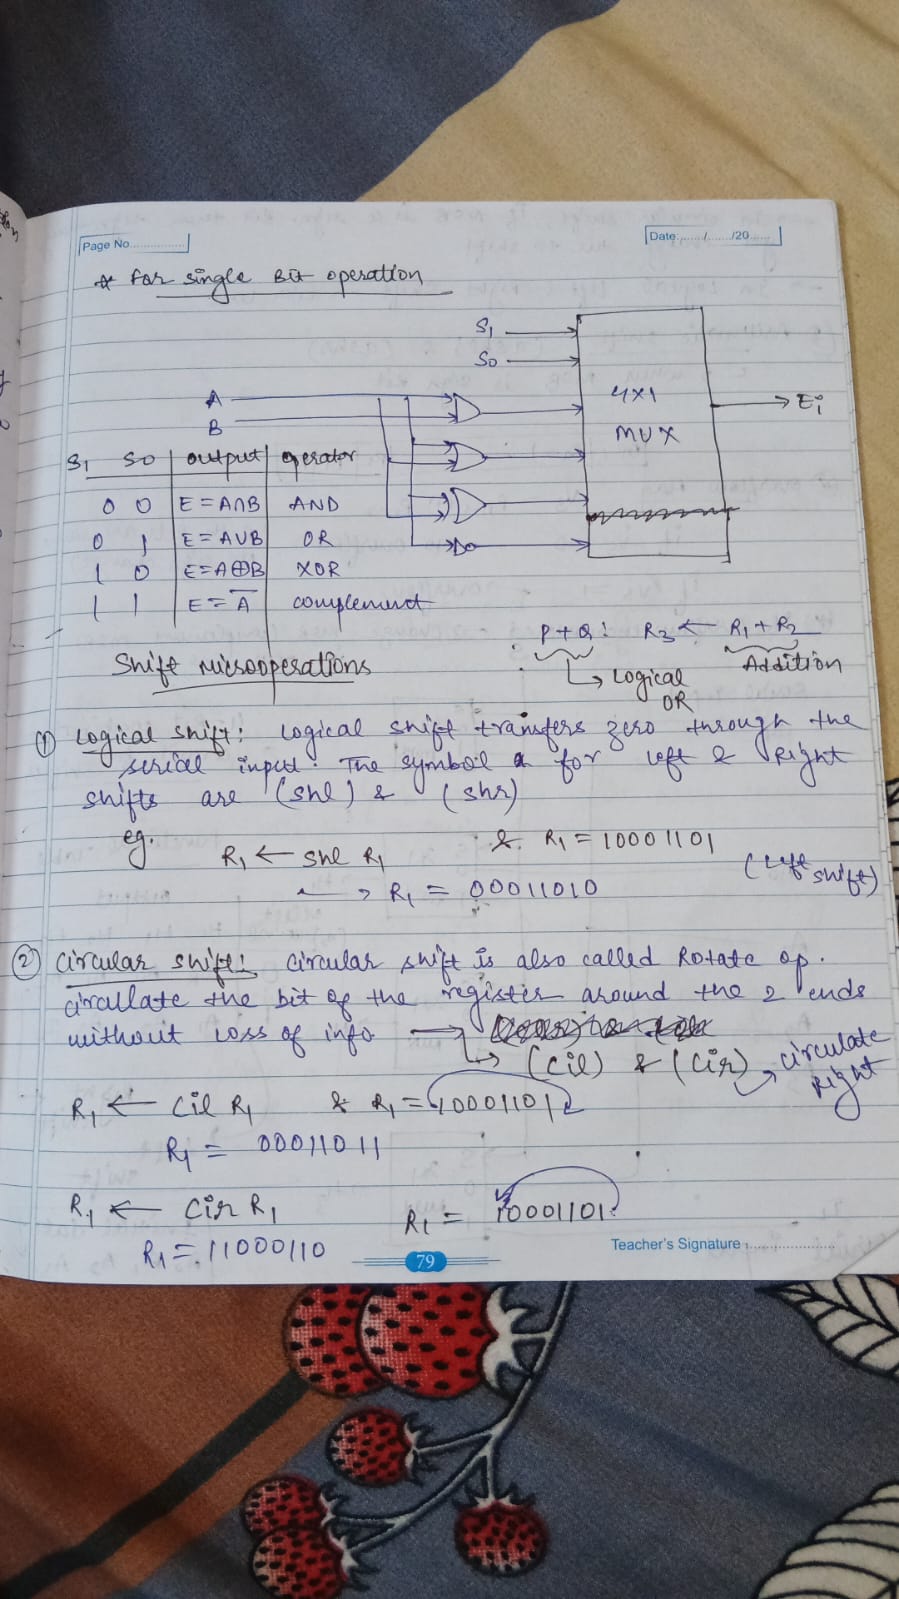 Page No..............
Date:....../....../20......
* For single Bit operation
S1
S0
A
B
4x1
MUX
Ei
S1 S0 | output | operator
0 0 | E = A∩B | AND
0 1 | E = A∪B | OR
1 0 | E = A⊕B | XOR
1 1 | E = A̅ | complement
P+Q: R3 ← R1 + R2
Logical OR
Addition
Shift Microoperations
① Logical shift: Logical shift transfers zero through the
serial input. The symbol for left & Right
shifts are (shl) & (shr)
eg.
R1 ← shl R1 & R1 = 10001101
→ R1 = 00011010 (Left shift)
② Circular shift: circular shift is also called Rotate op.
circulate the bit of the register around the 2 ends
without loss of info →
↳ (cil) & (cir) → circulate Right
R1 ← cil R1 & R1 = 10001101
R1 = 00011011
R1 ← cir R1 R1 = 10001101
R1 = 11000110
Teacher's Signature :....................
79